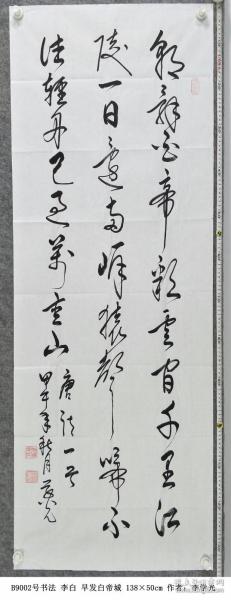 朝辭白帝彩雲間千里江
陵一日還兩岸猿聲啼不
住輕舟已過萬重山
唐詩一首
甲午年秋月學光
B9002号书法 李白 早发白帝城 138×50cm 作者：李学光